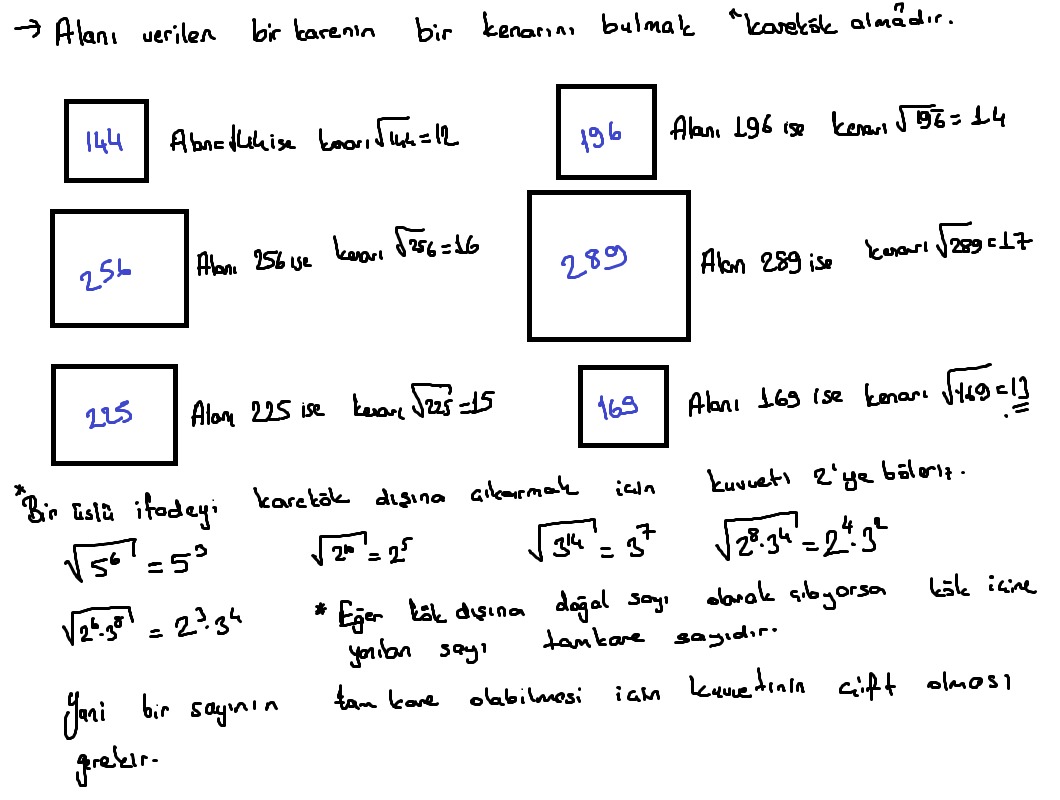 → Alanı verilen bir karenin bir kenarını bulmak "karekök almadır."
144 Alanı 144 ise kenarı √144 = 12
196 Alanı 196 ise kenarı √196 = 14
256 Alanı 256 ise kenarı √256 = 16
289 Alan 289 ise kenarı √289 = 17
225 Alanı 225 ise kenarı √225 = 15
169 Alanı 169 ise kenarı √169 = 13
* Bir üslü ifadeyi karekök dışına çıkarmak için kuvveti 2'ye böleriz.
√5⁶ = 5³ √2¹⁰ = 2⁵ √3¹⁴ = 3⁷ √2⁸·3⁴ = 2⁴·3²
√2⁶·3⁸ = 2³·3⁴
* Eğer kök dışına doğal sayı olarak çıkıyorsa kök içine
yazılan sayı tamkare sayıdır.
Yani bir sayının tam kare olabilmesi için kuvvetinin çift olması
gerekir.